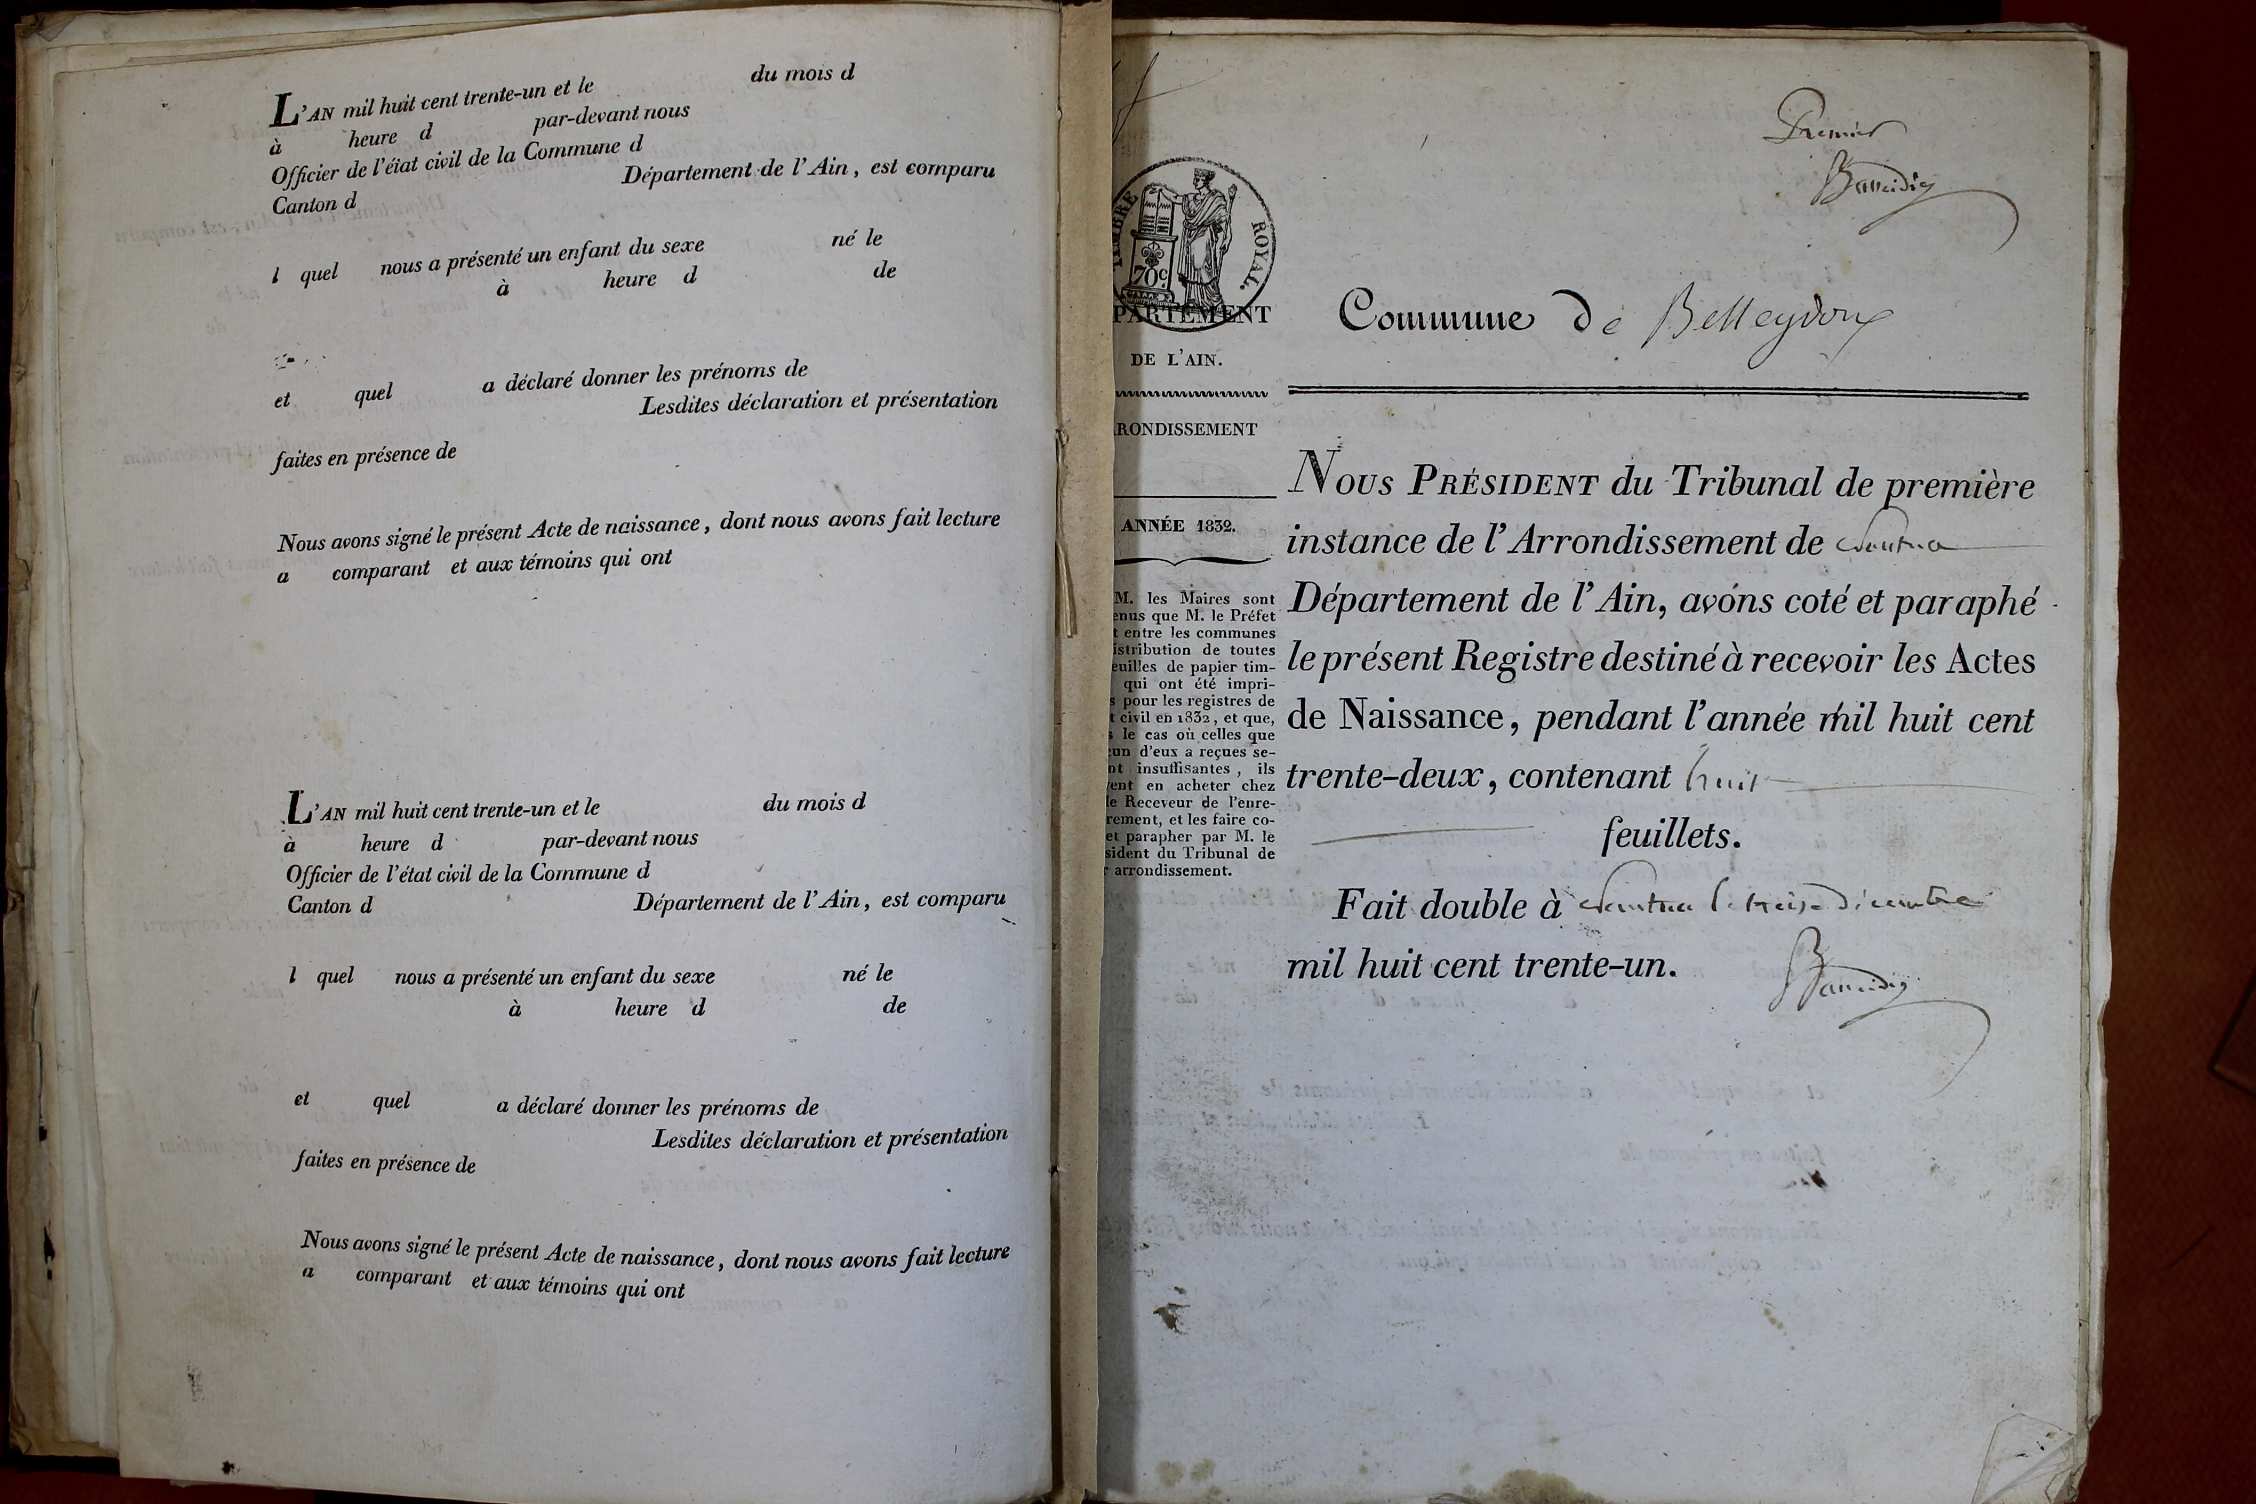 L'AN mil huit cent trente-un et le du mois d
à heure d par-devant nous
Officier de l'état civil de la Commune d
Canton d Département de l'Ain, est comparu
l quel nous a présenté un enfant du sexe né le
à heure d de
et quel a déclaré donner les prénoms de
Lesdites déclaration et présentation
faites en présence de
Nous avons signé le présent Acte de naissance, dont nous avons fait lecture
a comparant et aux témoins qui ont
L'AN mil huit cent trente-un et le du mois d
à heure d par-devant nous
Officier de l'état civil de la Commune d
Canton d Département de l'Ain, est comparu
l quel nous a présenté un enfant du sexe né le
à heure d de
et quel a déclaré donner les prénoms de
Lesdites déclaration et présentation
faites en présence de
Nous avons signé le présent Acte de naissance, dont nous avons fait lecture
a comparant et aux témoins qui ont
Premier
ROYAL.
70c.
PARTEMENT
DE L'AIN.
RONDISSEMENT
ANNÉE 1832.
M. les Maires sont
enus que M. le Préfet
t entre les communes
istribution de toutes
euilles de papier tim-
qui ont été impri-
s pour les registres de
t civil en 1832, et que,
s le cas où celles que
un d'eux a reçues se-
nt insuffisantes, ils
vent en acheter chez
le Receveur de l'enre-
rement, et les faire co-
et parapher par M. le
sident du Tribunal de
r arrondissement.
Commune de Belleydoux
NOUS PRÉSIDENT du Tribunal de première
instance de l'Arrondissement de Nantua
Département de l'Ain, avons coté et paraphé
le présent Registre destiné à recevoir les Actes
de Naissance, pendant l'année mil huit cent
trente-deux, contenant huit
feuillets.
Fait double à Nantua le treize Décembre
mil huit cent trente-un.